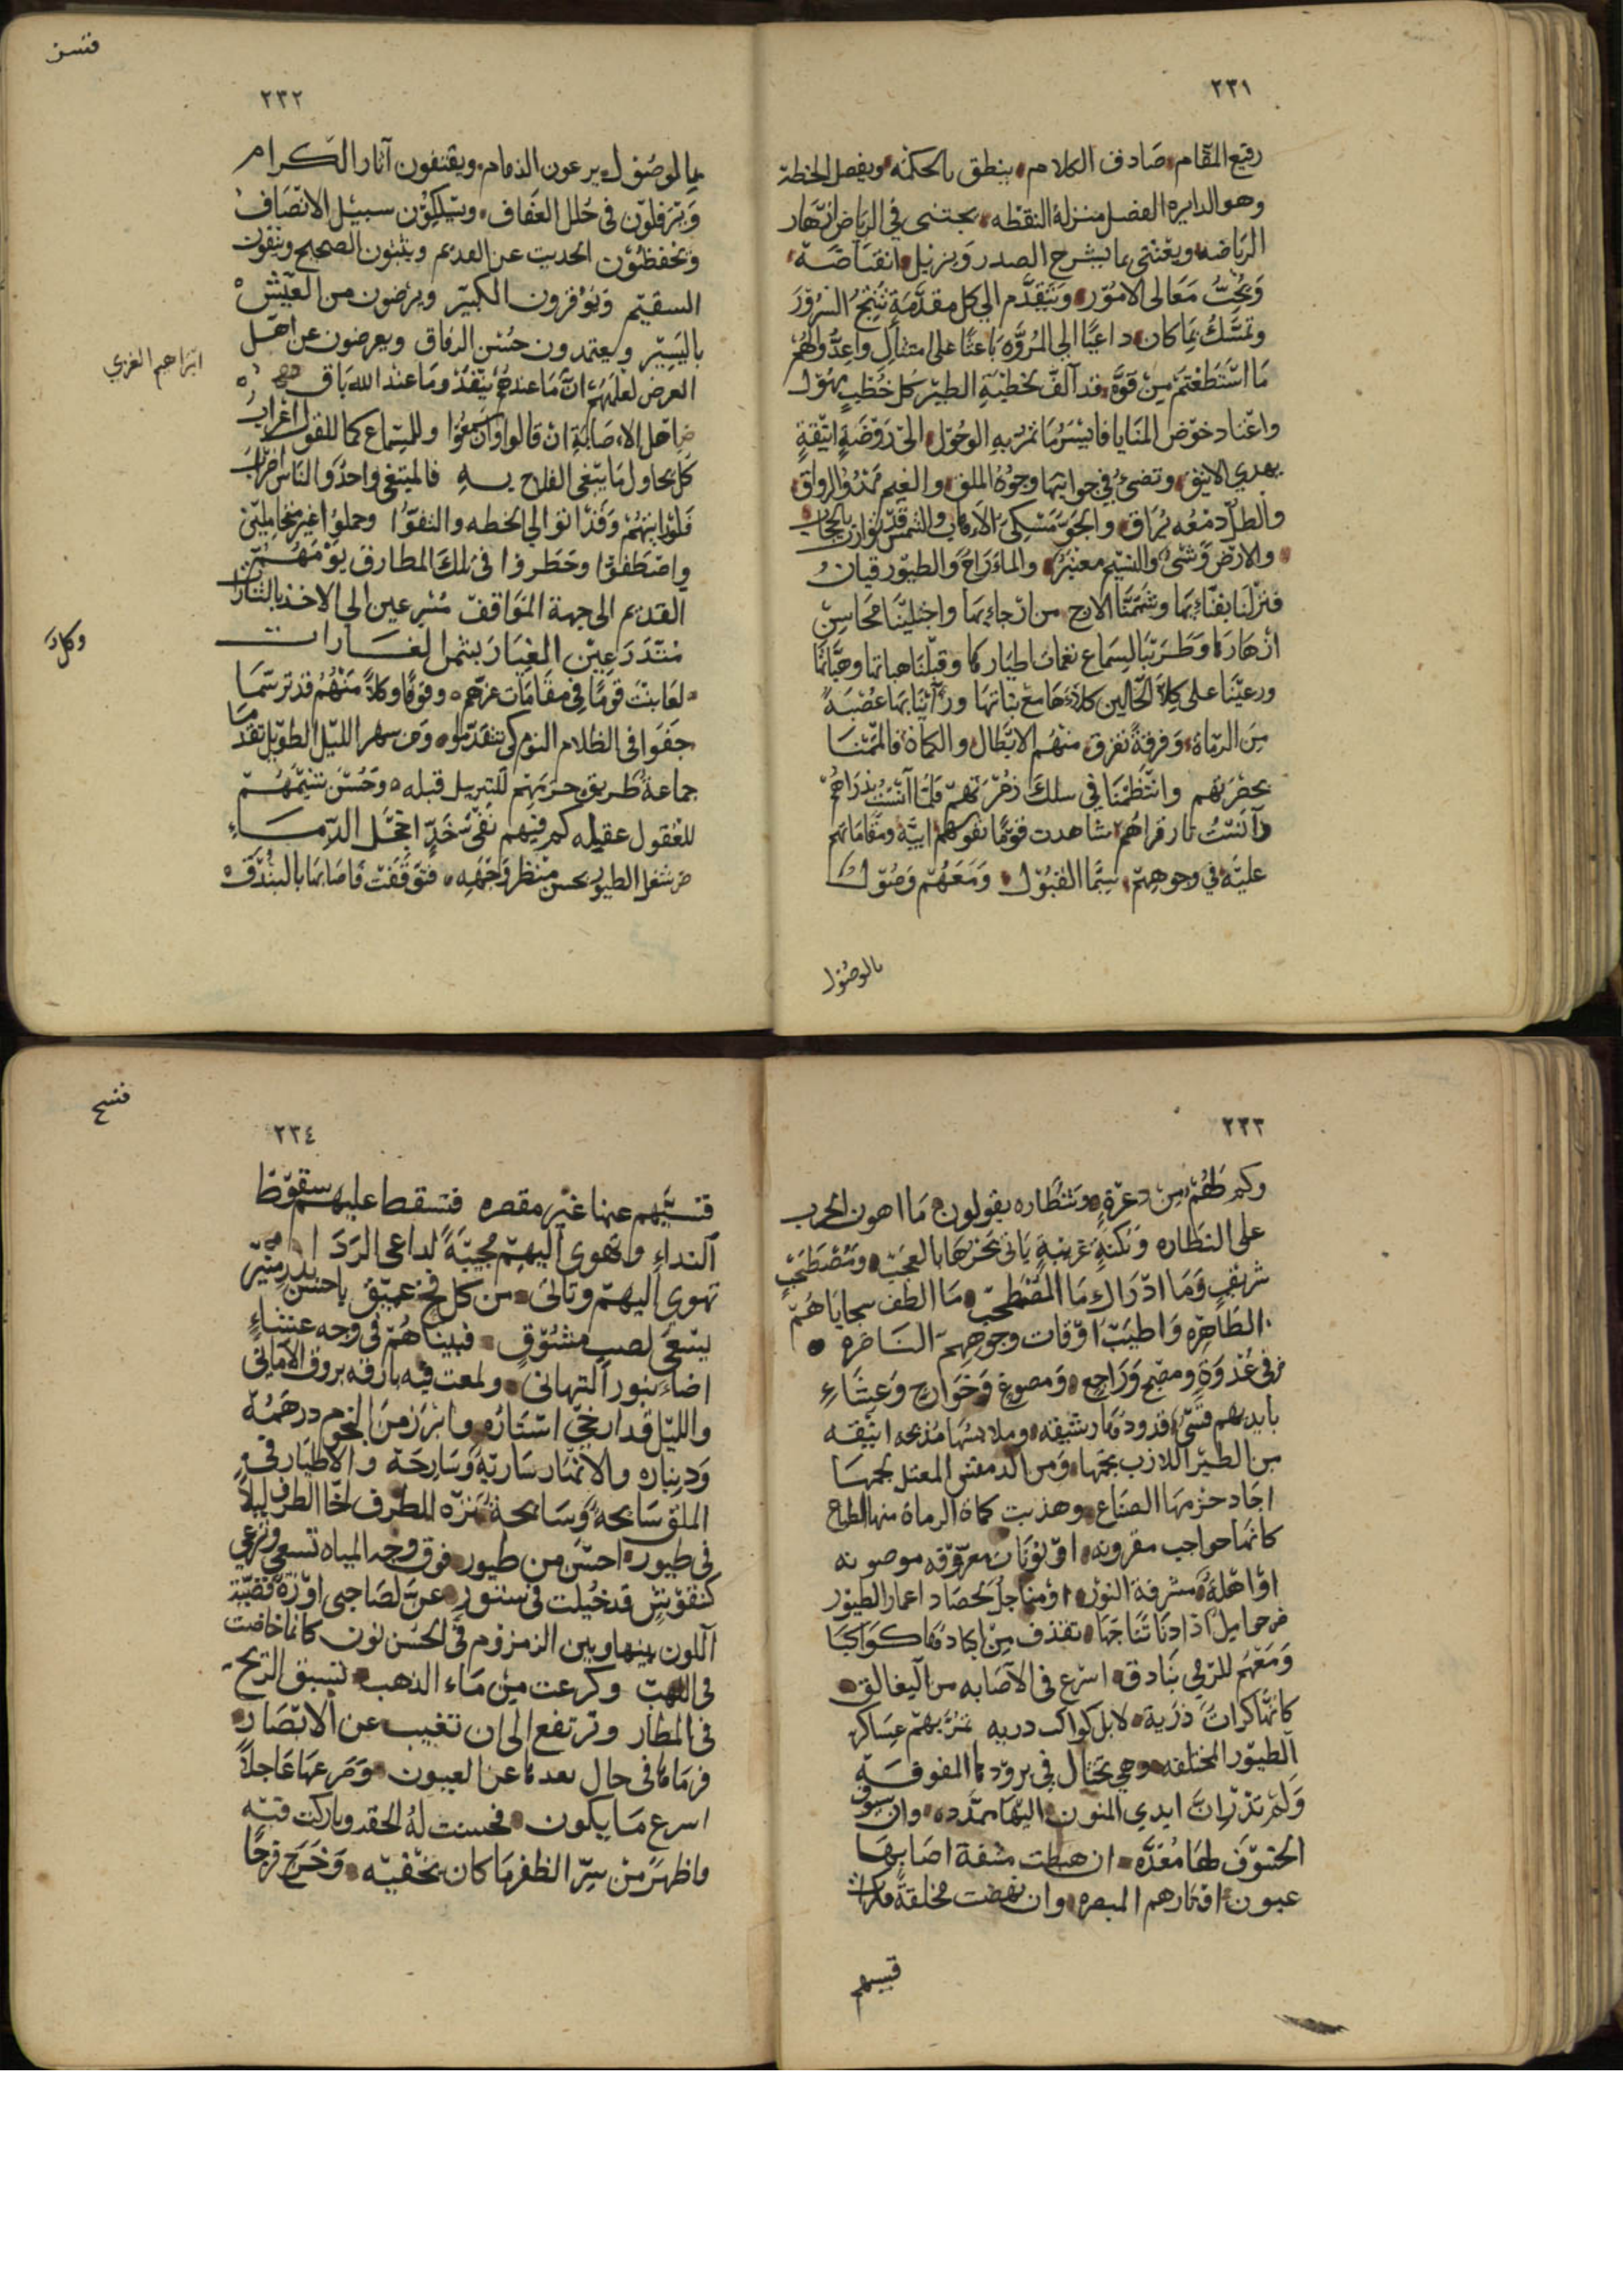 ٢٣١
رفيع المقام صادف الكلام ينطق بالحكمة ويفصل الخطة
وهو الدايرة الفضل منزلة النقطه يجتنى في الرياض ازهار
الرياضه ويعتنى بما يشرح الصدر ويزيل انقباضه
ويحب معالى الامور ويتقدم الي كل مقدمة تنتج السرور
وتمسك بما كان داعيا الي المروه باعثا على امتثال واعدوا لهم
ما استطعتم من قوة قد آلف بخطبة الطير كل خطب يهول
واعتاد خوض المنايا فايسر ما تمر به الوحول الى روضة انيقة
يهدي الانيق وتضئ في جوانبها وجوه الملق والغيم ممدود الرواق
والطل دمعه يراق والجو مسكى الاهاب والشمس قد توارت بالحجاب
والارض وشى والنسيم معنبر والماء راح والطيور قيان
فنزلنا بفنائها وشممنا الارج من ارجائها واجتلينا محاسن
ازهارها وطربنا لسماع نغمات اطيارها وقبلنا هباتها وحباتها
ورعينا على كلا الحالين كلاءها مع نباتها ورأينا بها عصبة
من الرماة وفرقة تفرق منهم الابطال والكماة فالتمسنا
بحضرتهم وانتظمنا في سلك زمرتهم فلما آنست بذراهم
وآنست نار قراهم شاهدت قوما نفوسهم ابية ومقاماتهم
علية في وجوههم سيما القبول ومعهم وصول
بالوصول
٢٣٢
بالموصول يرعون الذمام ويقتفون آثار الكرام
ويرفلون في حلل العفاف ويسلكون سبيل الانصاف
ويحفظون الحديث عن القديم ويثبتون الصحيح وينفون
السقيم ويوقرون الكبير ويرضون من العيش
باليسير ويعتمدون حسن الرفاق ويعرضون عن اهل
العرض لعلمهم ان ما عندهم ينفد وما عند الله باق
من اهل الاصابة ان قالوا وان سمعوا وللسماع كما للقول اغراب
كل يحاول ما يبغى الفلاح به فالمبتغى واحد والناس اضراب
فلو رايتهم وقد اتوا الي الخطه والتفوا وحملوا غير متحاملين
واصطفوا وخطروا في تلك المطارف يؤمهم
القديم الى جهة المواقف مسرعين الى الاخذ بالثار
متدرعين الغبار بتمر الغارات
لعاينت قوما في مقامات عزهم وقوفا وكلا منهم قد ترسما
جفوا في الظلام النوم كى يتقدموا ومن سهر الليل الطويل تقدما
جماعة طريق حربهم للتبريل قبله وحسن شيمهم
للعقول عقيله كم فيهم نقى خد اخجل الدماء
من شغل الطيور بحسن منظر وجهه فتوقفت فاصابها بالبندق
ابراهيم الغزي
وكلا
٢٣٣
وكم لهم من دعرة ونظاره يقولون ما اهون الحرب
على النظاره ونكتة غريبة ياتى بحرها بالعجب ومصطحب
شريف وما ادراك ما المصطحب ما الطف سجاياهم
الطاهره واطيب اوقات وجوههم الناضره
في غدوة ومصبح وراجع ومصوغ وخوارج وعشاء
بايديهم قسى قدودها رشيقه وملابسها مذبحه انيقه
من الطير اللازب بحتها ومن الدمقس المعتل لحمها
اجاد حزمها الصناع وهذبت كماة الرماة منها الطباع
كانها حواجب مقرونه او نونات معرقه موصونه
او اهلة مشرفة النور او مناجل لحصاد اعمار الطيور
من حواميل اذا دنا نتاجها تقذف من اكبادها كواكبا
ومعهم للرمي بنادق اسرع في الاصابه من اليغالق
كانها كرات ذرية لا بل كواكب دريه تمر بهم عساكر
الطيور المختلفه وهي تختال في برودها المفوفه
ولم تدر ان ايدي المنون اليها ممدده وان سيوف
الحتوف لها معده ان هبطت مسفة اصابها
عيون اقمارهم المبصره وان نهضت محلقة فكرات
قسيهم
٢٣٤
قسيهم عنها غير مقصره فتسقط عليهم سقوط
النداء وتهوى اليهم مجيبة لداعى الردا
تهوى اليهم وتاتى من كل فج عميق باحسن بدر منير
يسعى لصب مشوق فبيناهم في وجه عشاء
اضاء بنور التهانى ولمعت فيه بارقه بروق الامانى
والليل قد ارخى استاره وابرز من النجوم درهمه
وديناره والانمار سارية وسارحة والاطيار في
الملق سابحة وسانحة تنزه للطرف لخا الطرف ليلا
في طيور احسن من طيور فوق وجه المياه تسعى وترعى
كنقوش قد خيلت في ستور عن لصاحبى اوزة فضية
اللون بينها وبين الزمزوم في الحسن لون كانما خاضت
في اللهب وكرعت من ماء الذهب تسبق الريح
في المطار وترتفع الى ان تغيب عن الابصار
فرماها في حال بعدها عن العيون وصرعها عاجلا
اسرع ما يكون فحسنت له الحقد وباركت فتيه
واظهر من سر الظفر ما كان تخفيه وخرج فرحا